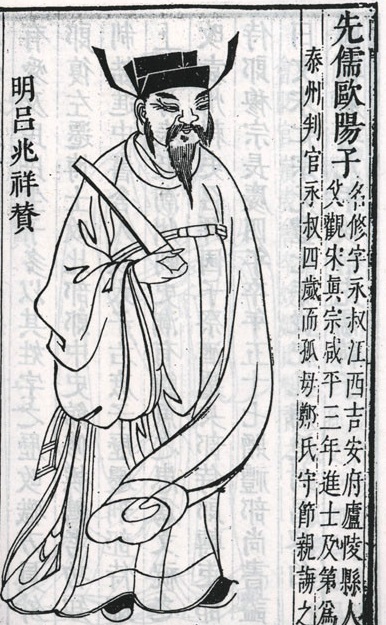 先儒歐陽子
名修字永叔江西吉安府廬陵縣人
父觀宋眞宗咸平三年進士及第爲
泰州判官永叔四歲而孤母鄭氏守節親誨之
明呂兆祥賛